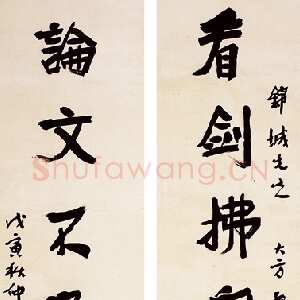 錦城先生
看劍拂
大方
論文不
戊寅秋仲
Shufawang.CN